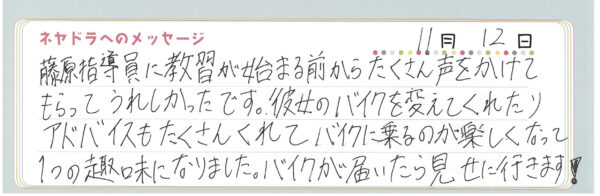 ネヤドラへのメッセージ
11月 12日
藤原指導員に教習が始まる前からたくさん声をかけて
もらってうれしかったです。彼女のバイクを変えてくれたり
アドバイスもたくさんくれてバイクに乗るのが楽しくなって
1つの趣味になりました。バイクが届いたら見せに行きます!